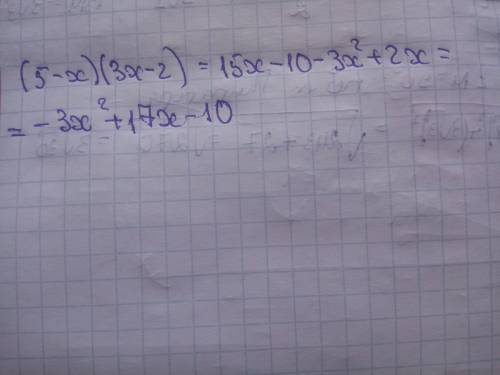 (5-x)(3x-2) = 15x-10-3x²+2x=
= -3x²+17x-10